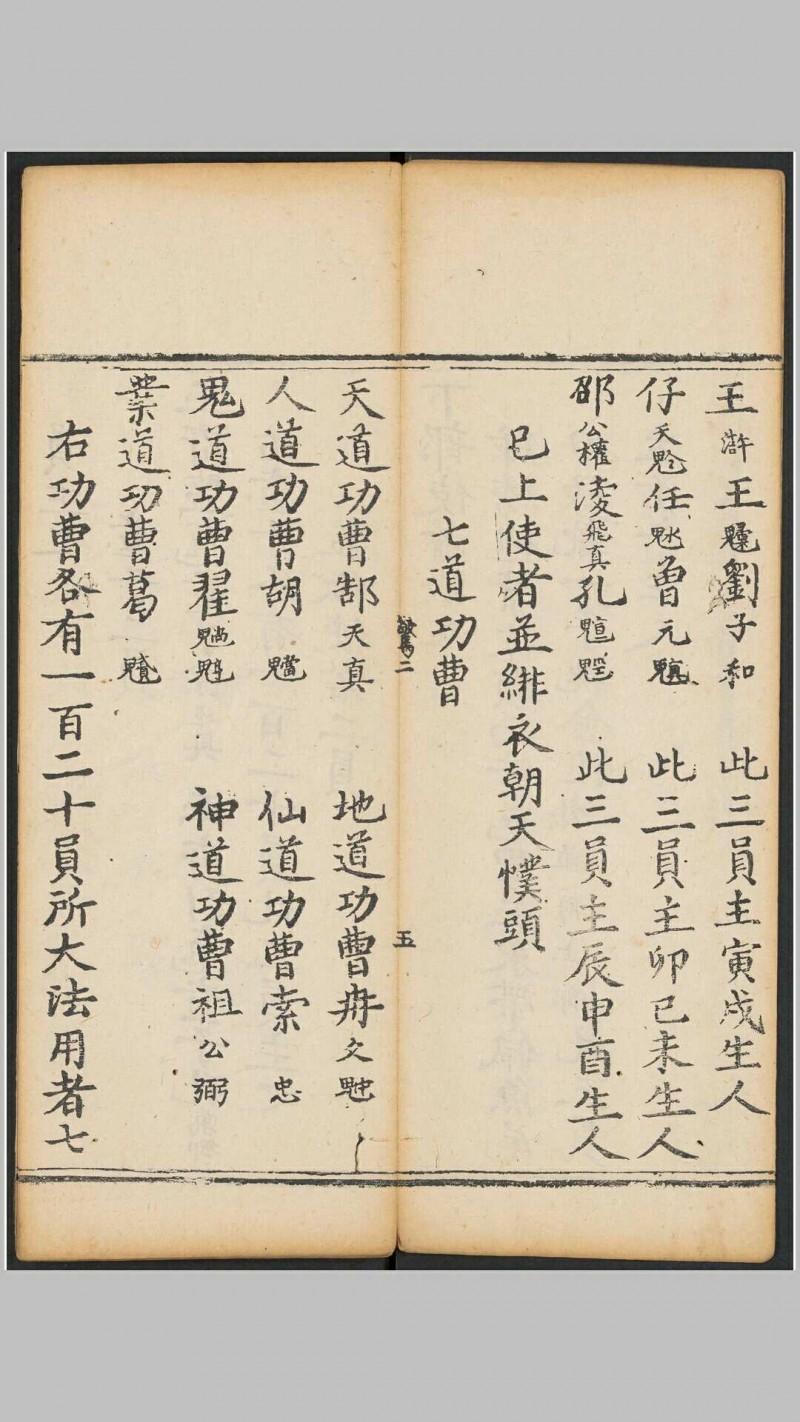 王 滸 王 劉 子和 此三員主寅戌生人
仔 天 任 曾 元 此三員主卯巳未生人
邵 公權 凌 飛真 孔 此三員主辰申酉生人
已上使者並緋衣朝天幞頭
七道功曹
二 五
天道功曹郜天真 地道功曹冉文
人道功曹胡 仙道功曹索忠
鬼道功曹翟 神道功曹祖公弼
業道功曹葛
右功曹各有一百二十員所大法用者七